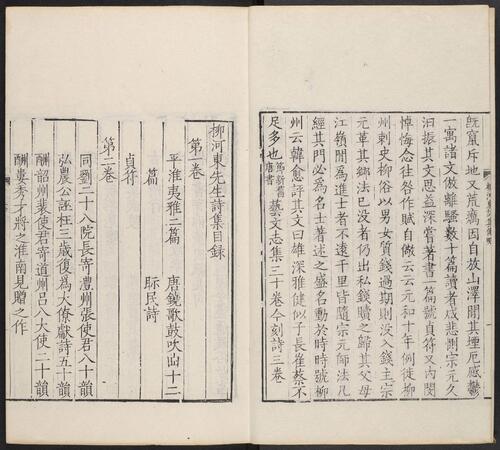 既竄斥地又荒癘因自放山澤間其堙厄感鬱
一寓諸文倣離騷數十篇讀者咸悲惻宗元久
汩振其文思益深嘗著書一篇號貞符又內閔
悼悔念往咎作賦自儆云元和十年例徙柳
州刺史柳俗以男女質錢過期則没入錢主宗
元革其鄉法已没者仍出私錢贖之歸其父母
江嶺間為進士者不遠千里皆隨宗元師法凡
經其門必為名士著述之盛名動於時時號柳
州云韓愈評其文曰雄深雅健似子長崔蔡不
足多也舊新唐書藝文志集三十卷今刻詩三卷
柳河東先生詩集目録
第一卷
平淮夷雅二篇 唐鐃歌鼓吹曲十二
篇 眎民詩
貞符
第二卷
同劉二十八院長寄澧州張使君八十韻
弘農公詒枉三歲復為大僚獻詩五十韻
酬韶州裴使君寄道州呂八大使二十韻
酬婁秀才將之淮南見贈之作